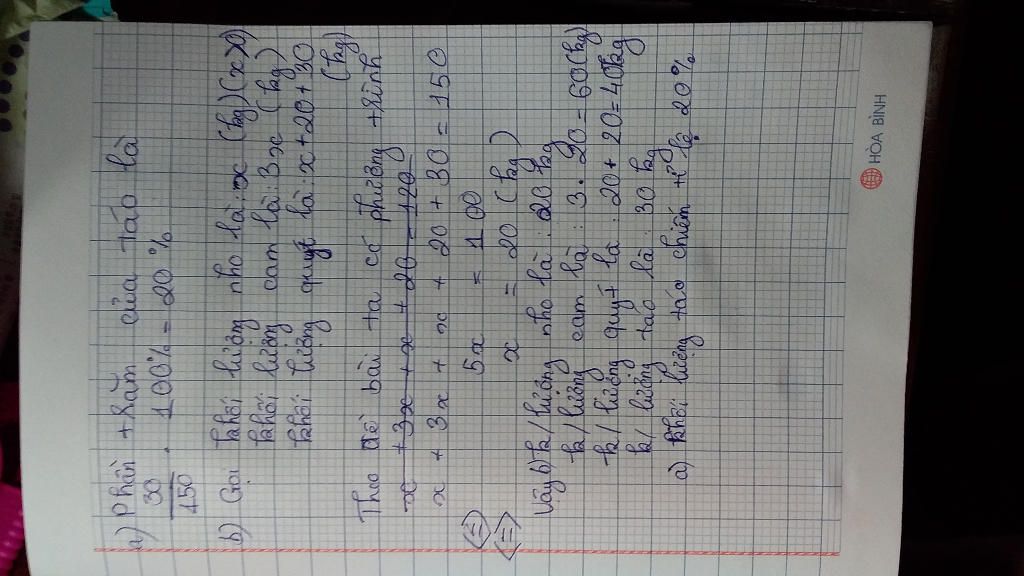 a) Phần trăm của táo là
30/150 . 100% = 20 %
b) Gọi khối lượng nho là : x (kg) (x>0)
khối lượng cam là : 3x (kg)
khối lượng quýt là : x + 20 + 30
(kg)
Theo đề bài ta có phương trình
x + 3x + x + 20 = 120
x + 3x + x + 20 + 30 = 150
⇔ 5x = 100
⇔ x = 20 (kg)
Vậy b) k/lượng nho là : 20 kg
k/lượng cam là : 3 . 20 = 60 (kg)
k/lượng quýt là : 20 + 20 = 40kg
k/lượng táo là : 30 kg
a) khối lượng táo chiếm tỉ lệ 20%
HÒA BÌNH